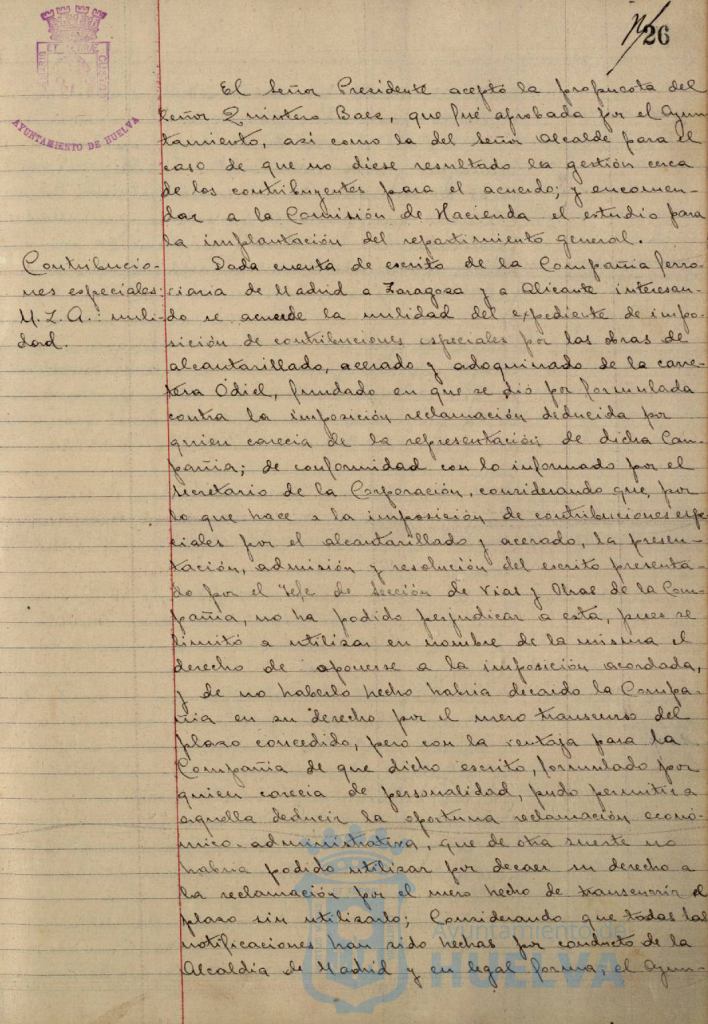 26
AYUNTAMIENTO DE HUELVA
El Señor Presidente aceptó la propuesta del
Señor Quintero Baez, que fué aprobada por el Ayun-
tamiento, así como la del Señor Alcalde para el
caso de que no diese resultado la gestión cerca
de los contribuyentes para el acuerdo; y encomen-
dar a la Comisión de Hacienda el estudio para
la implantación del repartimiento general.
Contribucio-
nes especiales:
M.Z.A.: nuli-
dad.
Dada cuenta de escrito de la Compañia ferro-
viaria de Madrid a Zaragoza y a Alicante interesan-
do se acuerde la nulidad del expediente de impo-
sición de contribuciones especiales por las obras de
alcantarillado, acerado y adoquinado de la carre-
tera Odiel, fundado en que se dió por formulada
contra la imposición reclamación deducida por
quien carecia de la representación de dicha Com-
pañia; de conformidad con lo informado por el
Secretario de la Corporación, considerando que, por
lo que hace a la imposición de contribuciones espe
ciales por el alcantarillado y acerado, la presen-
tación, admisión y resolución del escrito presenta-
do por el Jefe de Sección de Vias y Obras de la Com-
pañia, no ha podido perjudicar a esta, pues se
limitó a utilizar en nombre de la misma el
derecho de oponerse a la imposición acordada,
y de no haberlo hecho habria decaido la Compa-
ñia en su derecho por el mero transcurso del
plazo concedido, pero con la ventaja para la
Compañia de que dicho escrito, formulado por
quien carecia de personalidad, pudo permitir a
aquella deducir la oportuna reclamación econó-
mico-administrativa, que de otra suerte no
habria podido utilizar por decaer su derecho a
la reclamación por el mero hecho de transcurrir el
plazo sin utilizarlo; Considerando que todas las
notificaciones han sido hechas por conducto de la
Alcaldia de Madrid y en legal forma, el Ayun-
Ayuntamiento de
HUELVA